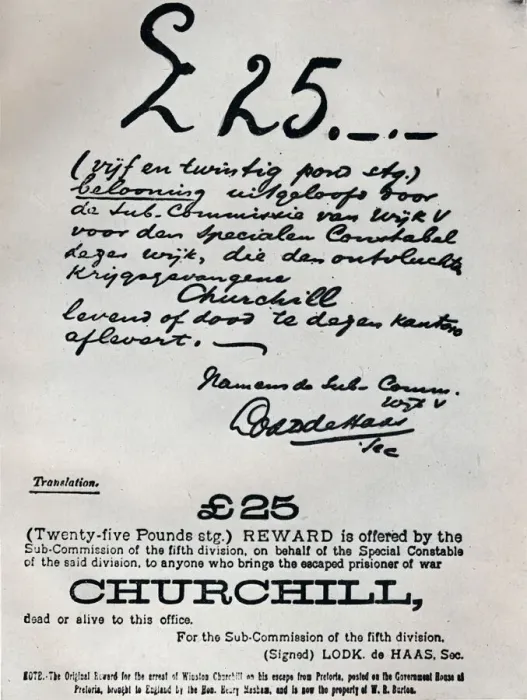 £ 25.—.—
(vijf en twintig pond stg.)
belooning uitgeloofd door
de Sub-Commissie van Wijk V
voor den specialen Constabel
dezer wijk, die den ontvluchte
Krijgsgevangene
Churchill
levend of dood te dezen kantore
aflevert. —
Namens de Sub-Comm.
Wijk V
Lodk de Haas
Sec
Translation.
£25
(Twenty-five Pounds stg.) REWARD is offered by the
Sub-Commission of the fifth division, on behalf of the Special Constable
of the said division, to anyone who brings the escaped prisioner of war
CHURCHILL,
dead or alive to this office.
For the Sub-Commission of the fifth division.
(Signed) LODK. de HAAS, Sec.
NOTE.-The Original Reward for the arrest of Winston Churchill on his escape from Pretoria, posted on the Government House at
Pretoria, brought to England by the Hon. Henry Masham, and is now the property of W. R. Burton.